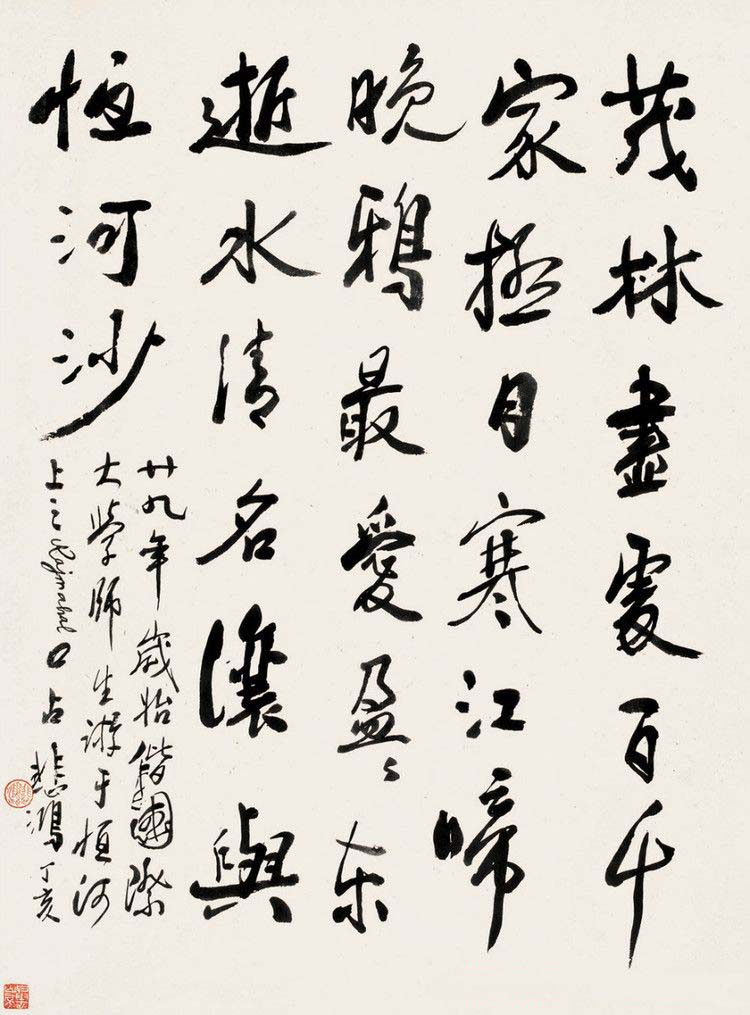 茂林盡處百千
家極目寒江啼
晚鴉最愛盈々東
逝水清名讓與
恒河沙
廿九年歲始偕國際
大學師生游于恒河
上之Rajmahal口占 悲鴻 丁亥